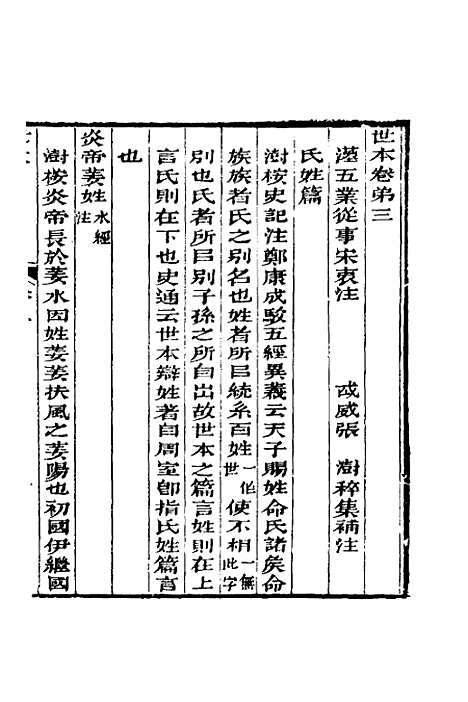 世本卷第三
漢五業從事宋衷注 武威張澍稡集補注
氏姓篇
澍桉史記注鄭康成駮五經異義云天子賜姓命氏諸矦命
族族者氏之別名也姓者所㠯統系百姓一作世使不相一無此字
別也氏者所㠯別子孫之所自出故世本之篇言姓則在上
言氏則在下也史通云世本辯姓著自周室卽指氏姓篇言
也
炎帝姜姓水經注
澍桉炎帝長於姜水因姓姜姜扶風之美陽也初國伊繼國